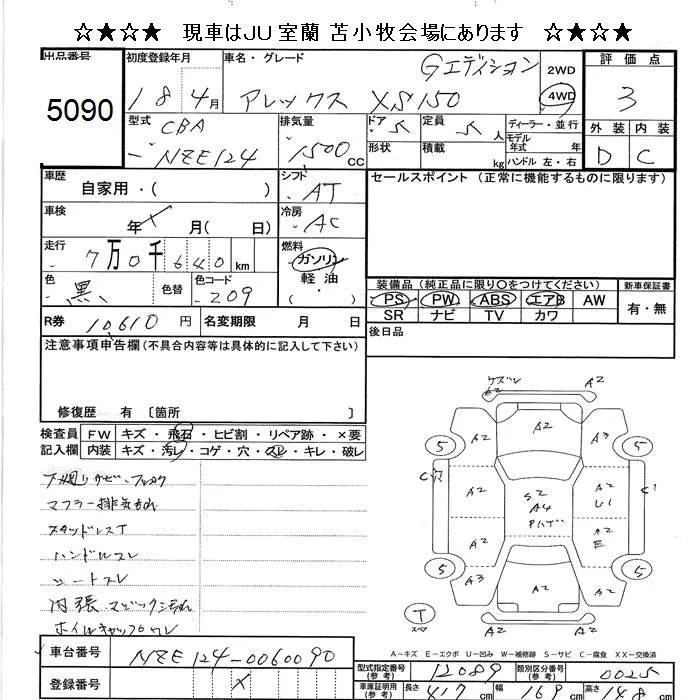 ☆★☆★ 現車はJU室蘭 苫小牧会場にあります ☆★☆★
出品番号 初度登録年月 車名・グレード 評価点
5090 18 4月 アレックス XS150 Gエディション 2WD 4WD 3
型式 CBA 排気量 ドア 5 定員 5 人 ディーラー・並行 外装 内装
- NZE124 1500 cc 形状 積載 kg モデル年式 年 ハンドル 左・右 D C
車歴 シフト セールスポイント(正常に機能するものに限ります)
自家用・( ) AT
車検 年 月( 日) 冷房 AC
走行 7万0千640km 燃料 ガソリン
軽油
・( )
色 黒 色替 色コード 209
装備品(純正品に限り〇をつけてください) 新車保証書
PS PW ABS エアB AW 有・無
SR ナビ TV カワ
R券 10,610円 名変期限 月 日 後日品
注意事項申告欄(不具合内容等は具体的に記入して下さい)
修復歴 有 〔箇所 〕
検査員 FW キズ・飛石・ヒビ割・リペア跡・×要
記入欄 内装 キズ・汚レ・コゲ・穴・スレ・キレ・破レ
下廻りサビ・
マフラー排気もれ
スタッドレスT
ハンドルスレ
シートスレ
内張マジック汚れ
ホイルキャップワレ
ケズレ A2
A2
A2 A2 A3
5 5
C穴 A2 S2 A2 C1
A4 U1
Pハゲ
A2 A2
E
5 A3 A2 A2 5
T
スペア
A2 A2
A-キズ E-エクボ U-凹み W-補修跡 S-サビ C-腐食 XX-交換済
車台番号 NZE124-0060090
登録番号 ×
型式指定番号(参考) 12089 類別区分番号(参考) 0025
車庫証明用(参考) 長さ 417cm 幅 169cm 高さ 148cm